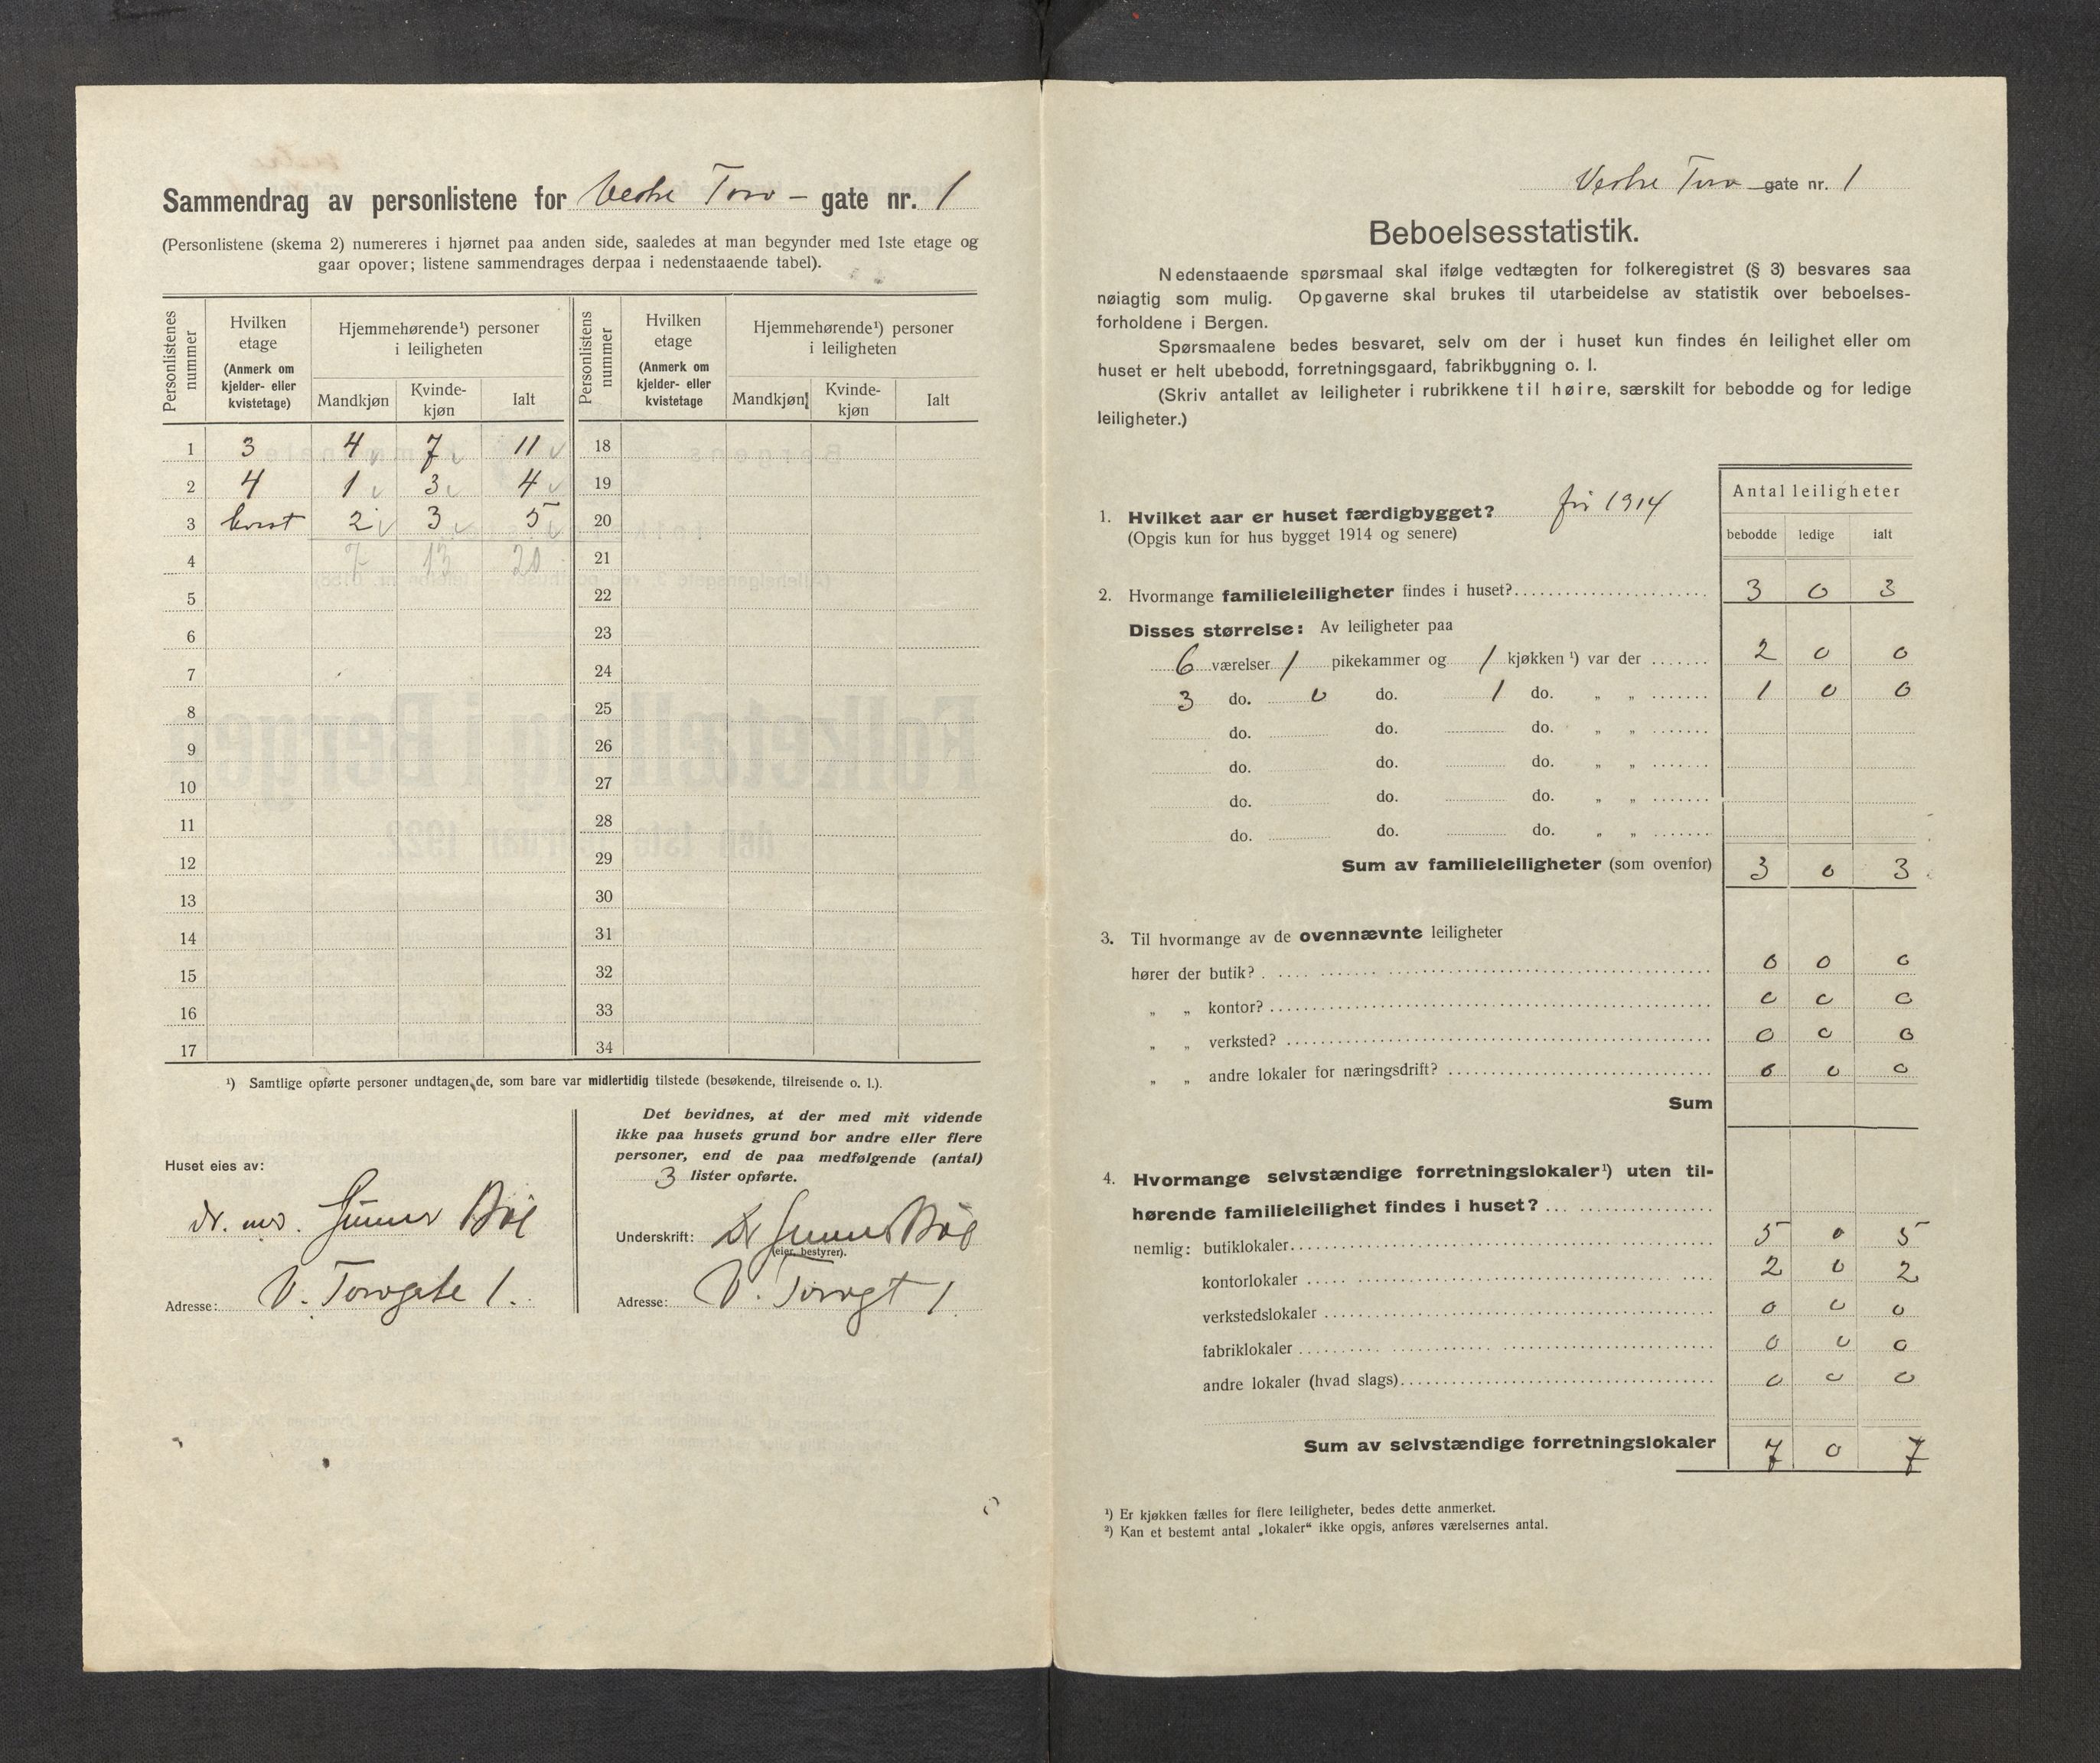 Sammendrag av personlistene for Vestre Torv – gate nr. 1
(Personlistene (skema 2) numereres i hjørnet paa anden side, saaledes at man begynder med 1ste etage og
gaar opover; listene sammendrages derpaa i nedenstaaende tabel).
Personlistenes nummer | Hvilken etage (Anmerk om kjelder- eller kvistetage) | Hjemmehørende¹) personer i leiligheten | Personlistens nummer | Hvilken etage (Anmerk om kjelder- eller kvistetage | Hjemmehørende¹) personer i leiligheten
Mandkjøn | Kvinde-kjøn | Ialt | Mandkjøn | Kvinde-kjøn | Ialt
1 3 4 7 11 18
2 4 1 3 4 19
3 kvist 2 3 5 20
4 7 13 20 21
5 22
6 23
7 24
8 25
9 26
10 27
11 28
12 29
13 30
14 31
15 32
16 33
17 34
¹) Samtlige opførte personer undtagen de, som bare var midlertidig tilstede (besøkende, tilreisende o. l.).
Huset eies av:
dr. med. Gunnar Bøe
Adresse: V. Torvgate 1.
Det bevidnes, at der med mit vidende
ikke paa husets grund bor andre eller flere
personer, end de paa medfølgende (antal)
3 lister opførte.
Underskrift: Dr Gunnar Bøe
(eier, bestyrer).
Adresse: V. Torvgt 1
Vestre Torv gate nr. 1
Beboelsesstatistik.
Nedenstaaende spørsmaal skal ifølge vedtægten for folkeregistret (§ 3) besvares saa
nøiagtig som mulig. Opgaverne skal brukes til utarbeidelse av statistik over beboelses-
forholdene i Bergen.
Spørsmaalene bedes besvaret, selv om der i huset kun findes én leilighet eller om
huset er helt ubebodd, forretningsgaard, fabrikbygning o. l.
(Skriv antallet av leiligheter i rubrikkene til høire, særskilt for bebodde og for ledige
leiligheter.)
Antal leiligheter
bebodde ledige ialt
1. Hvilket aar er huset færdigbygget? før 1914
(Opgis kun for hus bygget 1914 og senere)
2. Hvormange familieleiligheter findes i huset? 3 0 3
Disses størrelse: Av leiligheter paa
6 værelser 1 pikekammer og 1 kjøkken ¹) var der 2 0 0
3 do. 0 do. 1 do. „ „ 1 0 0
do. do. do. „ „
do. do. do. „ „
do. do. do. „ „
do. do. do. „ „
Sum av familieleiligheter (som ovenfor) 3 0 3
3. Til hvormange av de ovennævnte leiligheter
hører der butik? 0 0 0
„ „ kontor? 0 0 0
„ „ verksted? 0 0 0
„ „ andre lokaler for næringsdrift? 0 0 0
Sum
4. Hvormange selvstændige forretningslokaler¹) uten til-
hørende familieleilighet findes i huset?
nemlig: butiklokaler 5 0 5
kontorlokaler 2 0 2
verkstedslokaler 0 0 0
fabriklokaler 0 0 0
andre lokaler (hvad slags) 0 0 0
Sum av selvstændige forretningslokaler 7 0 7
¹) Er kjøkken fælles for flere leiligheter, bedes dette anmerket.
²) Kan et bestemt antal „lokaler“ ikke opgis, anføres værelsernes antal.